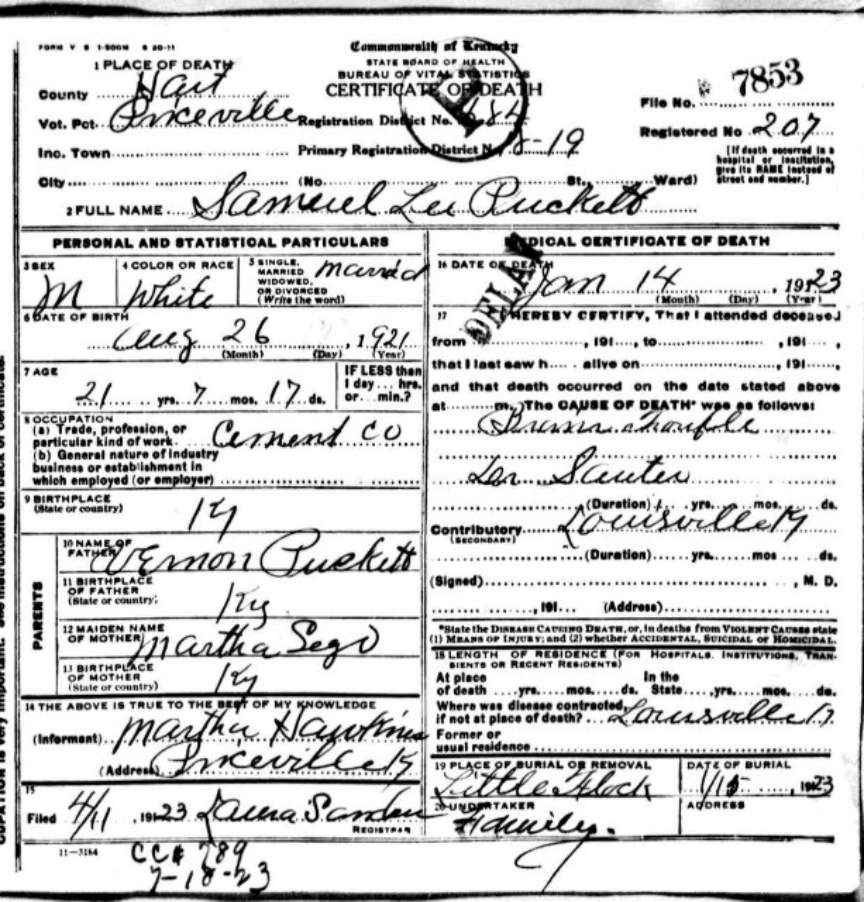 FORM V S 1-500M 6 20-11
Commonwealth of Kentucky
STATE BOARD OF HEALTH
BUREAU OF VITAL STATISTICS
CERTIFICATE OF DEATH
1 PLACE OF DEATH
County Hart
Vot. Pct.
Inc. Town
City
Registration District No. 484
Primary Registration District N 8-19
(No. St., Ward)
File No. 7853
Registered No 207
[If death occurred in a
hospital or institution,
give its NAME instead of
street and number.]
2 FULL NAME Samuel Lee Puckett
PERSONAL AND STATISTICAL PARTICULARS
3 SEX
M
4 COLOR OR RACE
White
5 SINGLE,
MARRIED
WIDOWED,
OR DIVORCED
(Write the word)
Married
6 DATE OF BIRTH
Aug 26, 1921
(Month) (Day) (Year)
7 AGE
21 yrs. 7 mos. 17 ds.
IF LESS than
1 day hrs.
or min.?
8 OCCUPATION
(a) Trade, profession, or
particular kind of work Cement CO
(b) General nature of industry
business or establishment in
which employed (or employer)
9 BIRTHPLACE
(State or country)
Ky
PARENTS
10 NAME OF
FATHER Vernon Puckett
11 BIRTHPLACE
OF FATHER
(State or country)
Ky
12 MAIDEN NAME
OF MOTHER Martha Sego
13 BIRTHPLACE
OF MOTHER
(State or country)
Ky
14 THE ABOVE IS TRUE TO THE BEST OF MY KNOWLEDGE
(Informant) Martha Hawkins
(Address) Ky
15
Filed 4/11, 1923 Laura
REGISTRAR
11-3164
CC# 789
7-18-23
MEDICAL CERTIFICATE OF DEATH
DELAY
16 DATE OF DEATH
Jan 14, 1923
(Month) (Day) (Year)
17 I HEREBY CERTIFY, That I attended deceased
from , 191 , to , 191 ,
that I last saw h alive on , 191 ,
and that death occurred on the date stated above
at m. The CAUSE OF DEATH* was as follows:
(Duration) yrs. mos. ds.
Contributory Louisville Ky
(SECONDARY)
(Duration) yrs. mos ds.
(Signed) , M. D.
, 191 (Address)
*State the DISEASE CAUSING DEATH, or, in deaths from VIOLENT CAUSES state
(1) MEANS OF INJURY; and (2) whether ACCIDENTAL, SUICIDAL or HOMICIDAL.
18 LENGTH OF RESIDENCE (FOR HOSPITALS, INSTITUTIONS, TRAN-
SIENTS OR RECENT RESIDENTS)
At place In the
of death yrs. mos. ds. State yrs. mos. ds.
Where was disease contracted,
if not at place of death? Louisville Ky
Former or
usual residence
19 PLACE OF BURIAL OR REMOVAL
Little Flock
DATE OF BURIAL
1/15, 1923
20 UNDERTAKER
Family.
ADDRESS